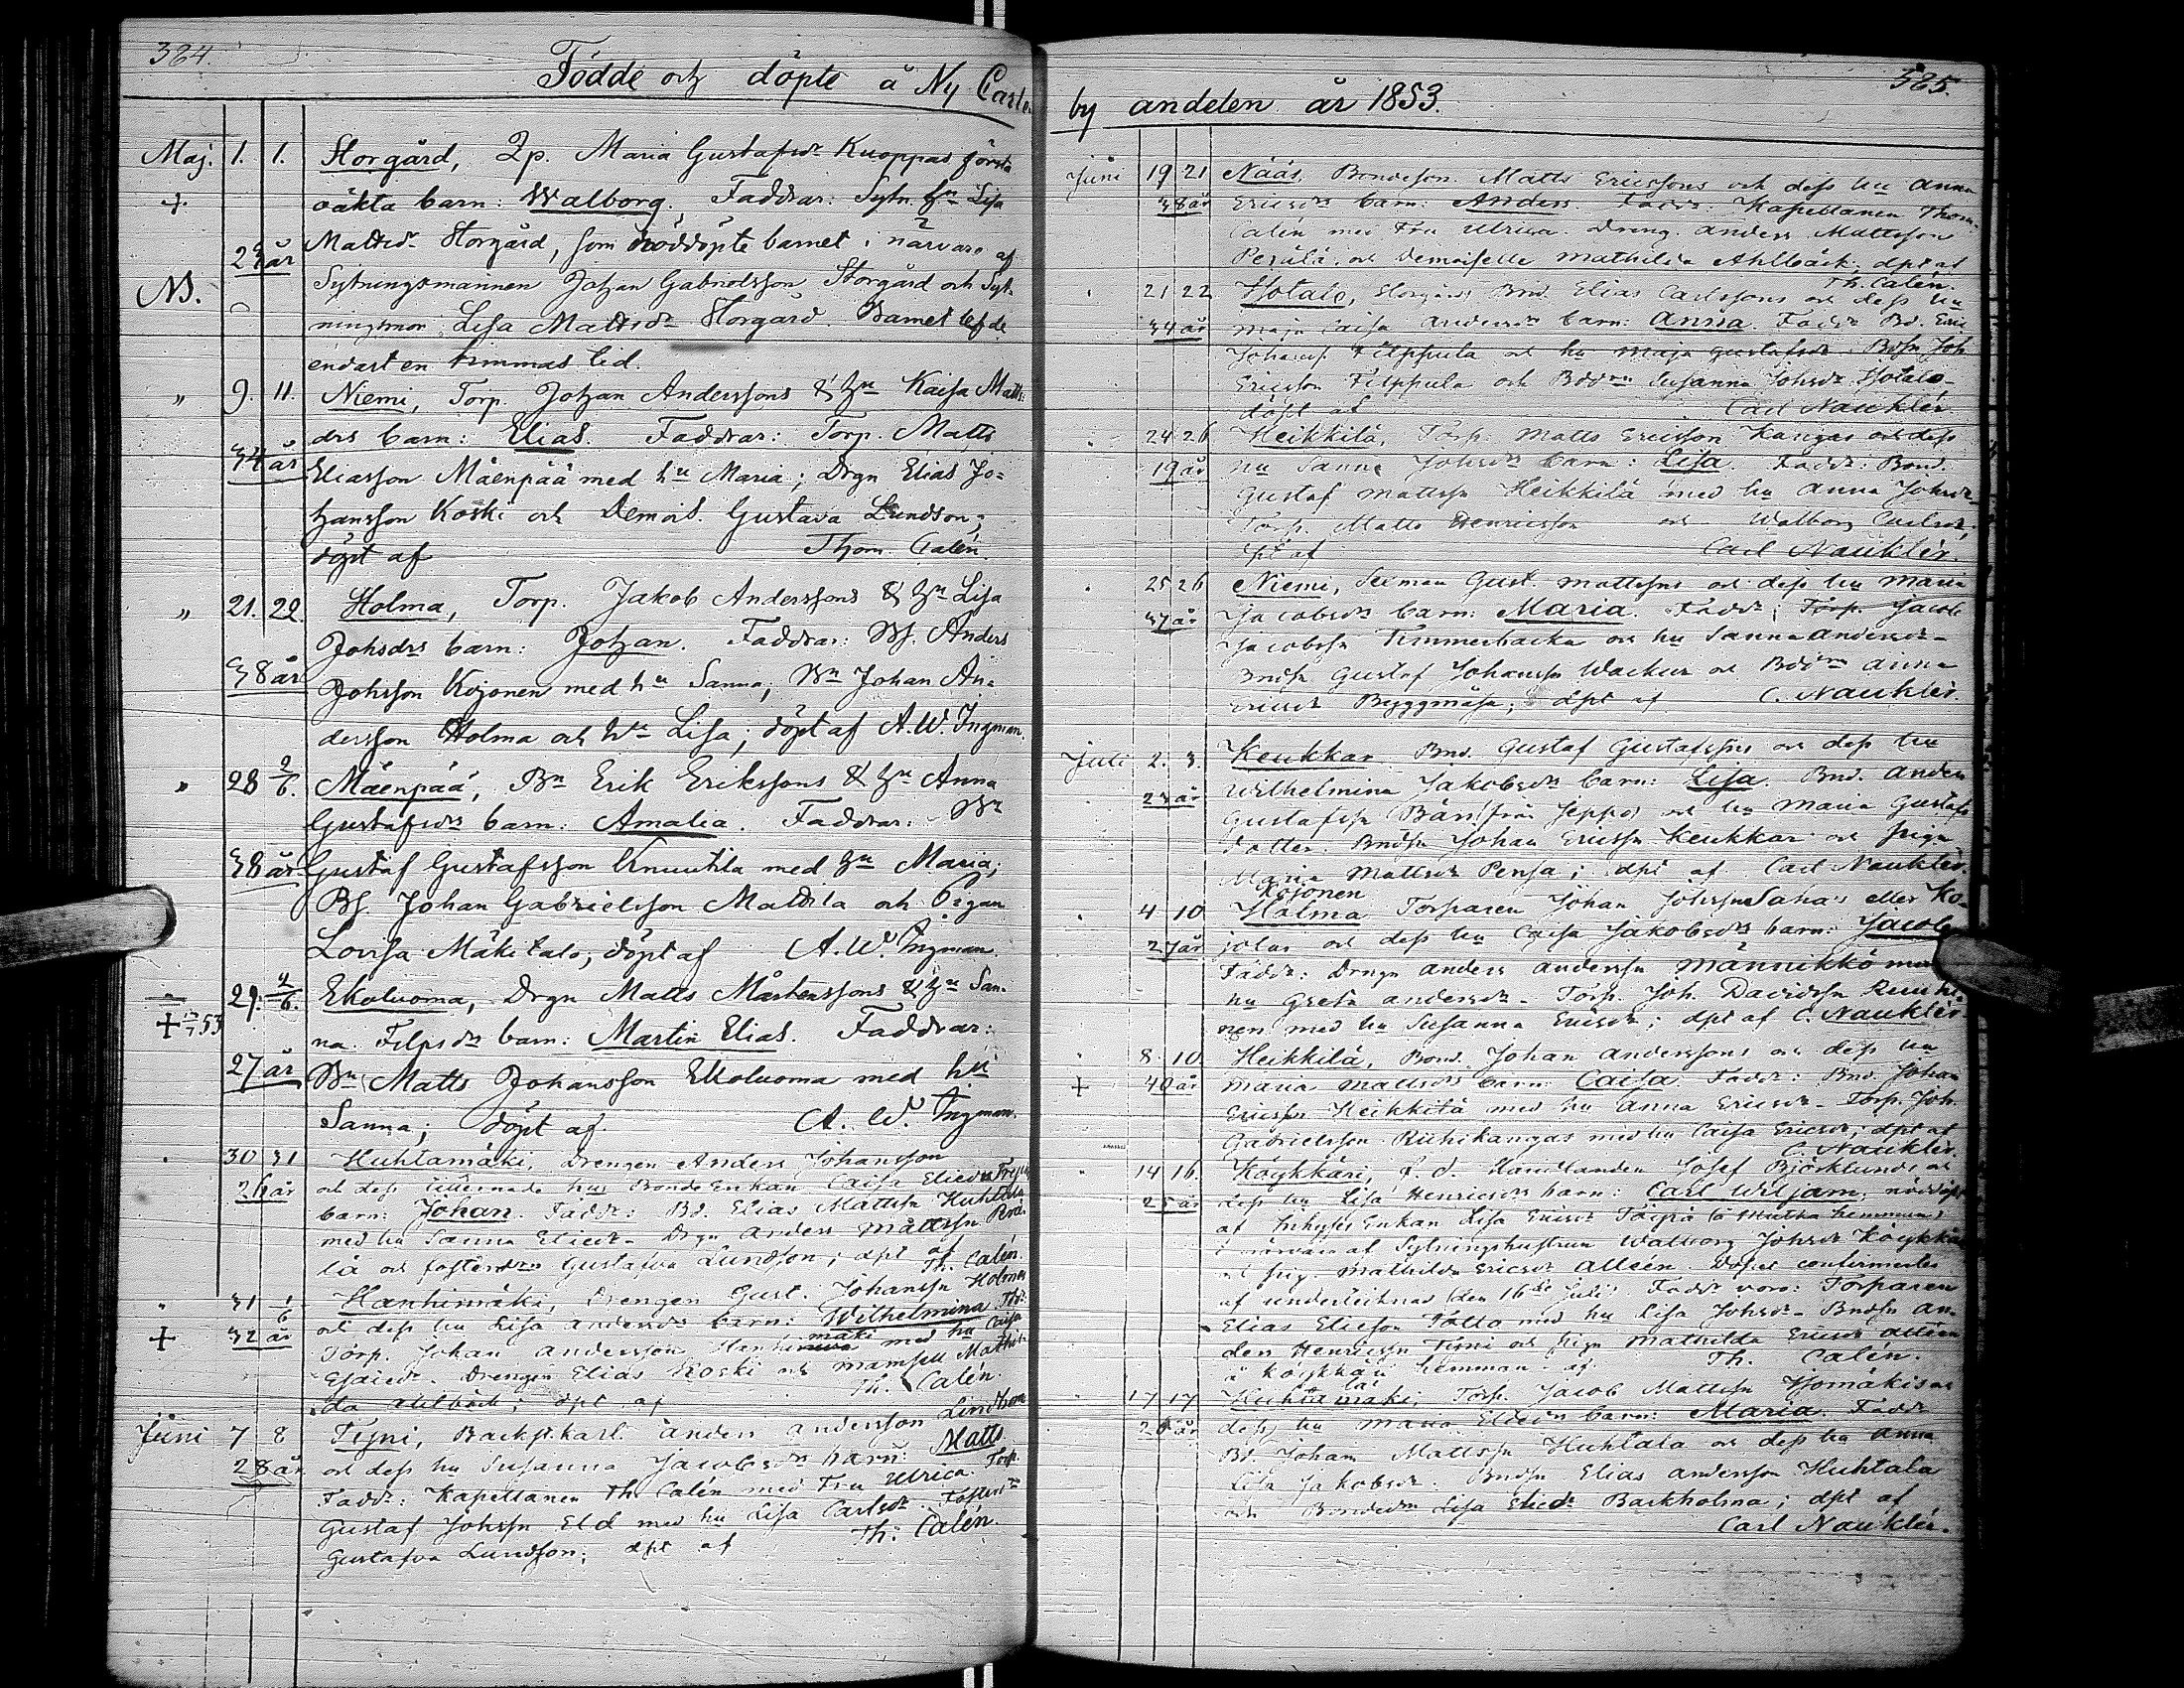 384.
Födde och döpte å Ny Carle
Maj. 1. 1. Storgård, Qp. Maria Gustafsdr Kuoppas första
+ oäkta barn: Walborg. Faddrar: Sytn. hu Lisa
23 år Mattsdr Storgård, som nöddöpte barnet i närvaro af
NB. Sytningsmannen Johan Gabrielsson Storgård och Syt-
ningsmor Lisa Mattsdr Storgård. Barnet lefde
endast en timmas tid.
" 9. 11. Niemi, Torp. Johan Anderssons & hu Kaisa Matts-
drs barn: Elias. Faddrar: Torp. Matts
34 år Eliasson Mäenpää med hu Maria; Drgn Elias Jo-
hansson Koski och Demois. Gustava Lundson;
döpt af Thom. Calén.
" 21. 22. Holma, Torp. Jakob Anderssons & hu Lisa
Johsdrs barn: Johan. Faddrar: Bs. Anders
38 år Johsson Kojonen med hu Sanna; Bn Johan An-
dersson Holma och hu Lisa; döpt af A. W. Ingman.
" 28 2/6. Mäenpää, Bn Erik Erikssons & hu Anna
Gustafsdrs barn: Amalia. Faddrar: Bn
38 år Gustaf Gustafsson Knuutila med hu Maria;
Bs. Johan Gabrielsson Mattila och Pigan
Lovisa Mäkitalo; döpt af A. W. Ingman.
29. 2/6. Ekoluoma, Drgn Matts Mårtenssons & hu San-
+ 53 na Filpsdrs barn: Martin Elias. Faddrar:
27 år Bn Matts Johansson Ekoluoma med hu
Sanna; döpt af A. W. Ingman.
30 31 Huhtamäki, Drengen Anders Johansson
26 år och dess hu Bonde Enkan Caisa Eliedr
barn: Johan. Faddr: Bd. Elias Mattssn Huhtala
med hu Sanna Eliedr - Drgn Anders Mattssn
lä och fosterdr Gustafva Lundson; dpt af Th. Calén.
31 1/6 Hanhimäki, Drengen Gust. Johanssn Holmas
+ 32 år och dess hu Lisa Andersdrs barn: Wilhelmina. Fdr:
Torp. Johan Andersson Hanhimäki med hu Caisa
Esaiedr. Drengen Elias Koski och Mamsell Mathil-
da Ahlbäck; dpt af Th. Calén.
Juni 7 8 Tyni, Backst.karl. Anders Andersson Lindbom
28 år och dess hu Susanna Jacobsdrs barn: Matts
Faddr: Kapellanen Th. Calén med Fru Ulrica. Torp.
Gustaf Johssn Eld med hu Lisa Carlsdr. Fosterdr
Gustafva Lundson; dpt af Th. Calén.
385.
by andelen år 1853.
Juni 19 21 Nääs, Bondeson Matts Ericssons och dess hu Anna
38 år Ericsdrs barn: Anders. Faddr: Kapellanen Thom.
Calén med Fru Ulrica. Dreng. Anders Mattsson
Perälä och Demoiselle Mathilda Ahlbäck; dpt af
Th. Calén.
21 22 Isotalo, Storgårds Bnd. Elias Carlssons och dess hu
34 år Maja Caisa Andersdrs barn: Anna. Faddr Bd. Eric
Johanss. Filppula och hu Maja Gustafsdr. Bdsn Joh.
Ericsson Filppula och Bddrn Susanna Johsdr Isotalo -
döpt af Carl Nauklér.
24 26 Heikkilä, Torp. Matts Ericsson Kangas och dess
19 år hu Sanna Johsdrs barn: Lisa. Faddr: Bond.
Gustaf Mattssn Heikkilä med hu Anna Johsdr
Torp. Matts Henricsson och Walborg Carlsdr;
dpt af Carl Nauklér.
25 26 Niemi, Sexman Gust. Mattssns och dess hu Maria
37 år Jacobsdrs barn: Maria. Faddr: Torp. Jacob
Jacobssn Timmerbacka och hu Sanna Andersdr -
Bndsn Gustaf Johanssn Wacker och Bddrn Anna
Ericsdr Byggmäsa; dpt af C. Nauklér.
Juli 2. 3. Keukkar Bnd. Gustaf Gustafssns och dess hu
23 år Wilhelmina Jakobsdrs barn: Lisa. Bnd. Anders
Gustafssn Bärs (från Jeppo) och hu Maria Gustafs
dotter. Bndsn Johan Ericssn Keukkar och Pigan
Maria Mattsdr Pensa; dpt af Carl Nauklér.
Kojonen
4 10 Holma Torparen Johan Johssn Sanas eller Ko-
27 år jolas och dess hu Caisa Jakobsdrs barn: Jacob
Faddr: Drngn Anders Anderssn Männikkö med
hu Greta Andersdr - Torp. Joh. Davidssn
nen med hu Susanna Ericsdr; dpt af C. Nauklér.
8 10 Heikkilä, Bond. Johan Anderssons och dess hu
+ 40 år Maria Mattsdrs barn: Caisa. Faddr: Bnd. Johan
Ericssn Heikkilä med hu Anna Ericsdr - Torp. Joh.
Gabrielsson Riihikangas med hu Caisa Ericsdr; dpt af
C. Nauklér.
14 16 Köykkäri, f. d. Handlanden Josef Björklunds och
25 år dess hu Lisa Henricsdrs barn: Carl Wiljam, nöddöpt
af Inhyses Enkan Lisa Ericsdr Töyrä (å Mutka hemman)
i närvaro af Sytningshustrun Walborg Johsdr Köykkäri
och Pig. Mathilda Ericsdr Alléen. Dopet confirmerdes
af undertecknad den 16de Juli. Faddr voro: Torparen
Elias Eliesson Tollo med hu Lisa Johsdr - Bndsn An-
ders Henricssn Tyni och Pign Mathilda Ericsdr Alléen
å Köykkäri hemman - af Th. Calén.
17 17 Huhtamäki, Torp. Jacob Mattssn Isomäkis och
26 år dess hu Maria Eliedrs barn: Maria. Faddr
Bd. Johan Mattssn Huhtala och dess hu Anna
Lisa Jakobsdr. Bndsn Elias Andersson Huhtala
och Bondedrn Lisa Eliedr Backholma; dpt af
Carl Nauklér.